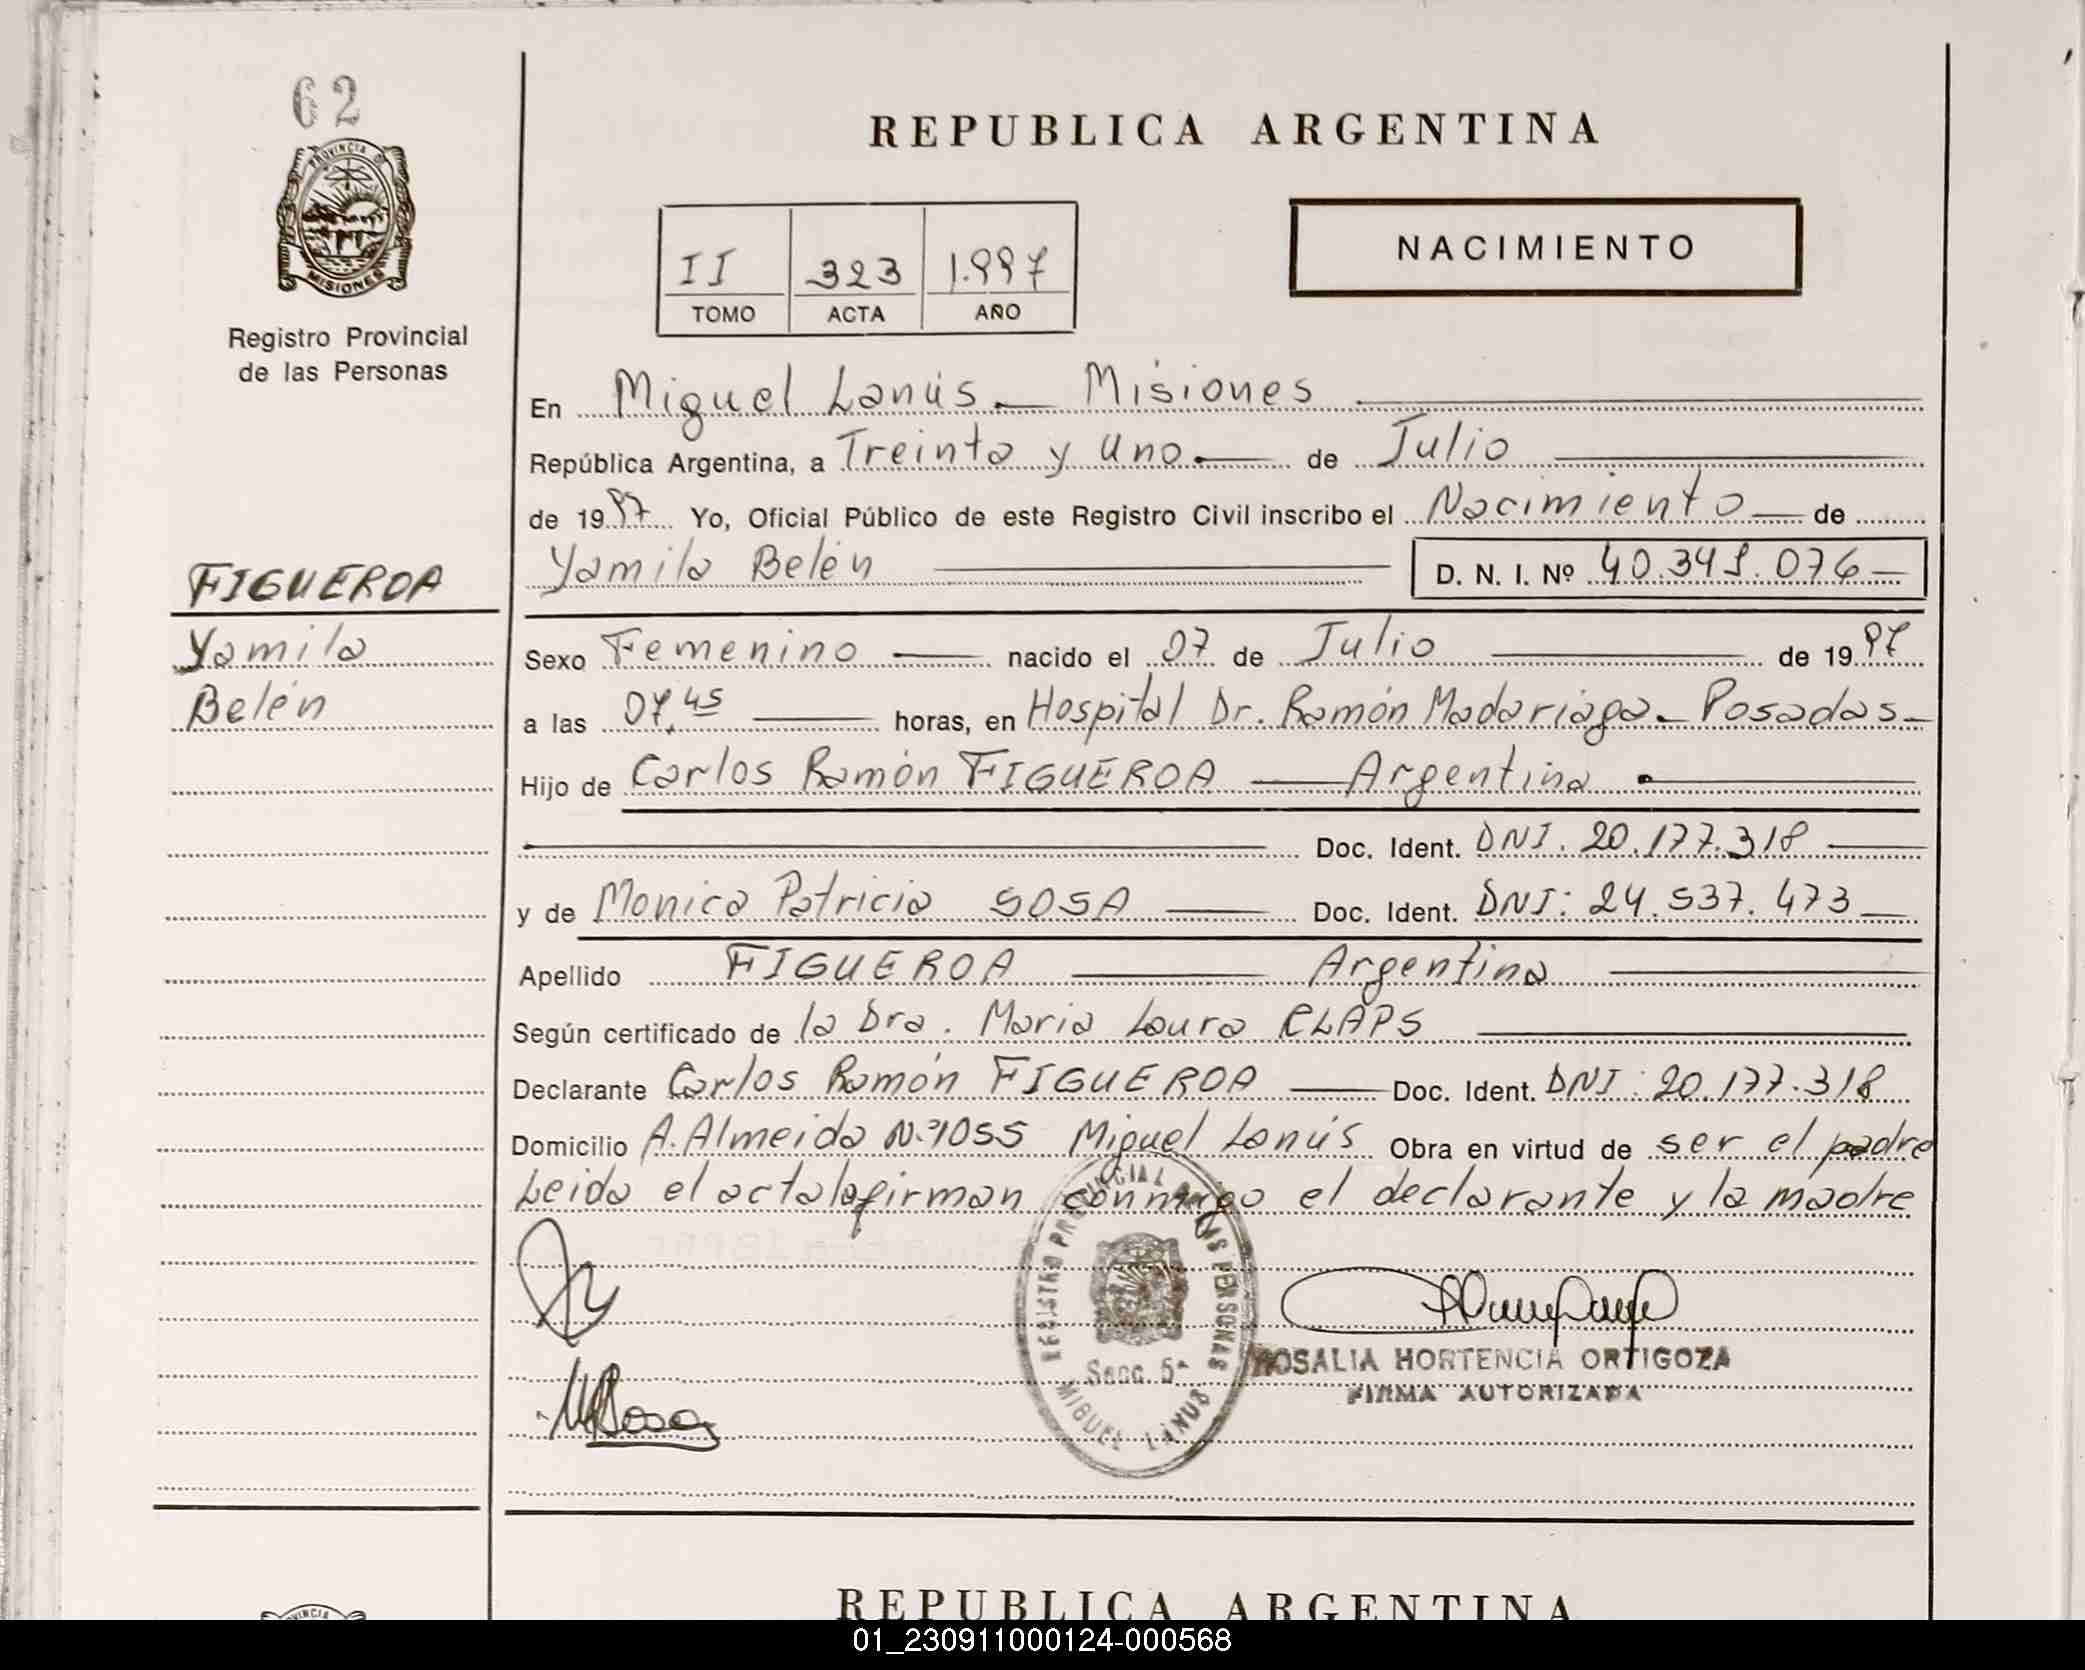 62
PROVINCIA DE
MISIONES
Registro Provincial
de las Personas
REPUBLICA ARGENTINA
NACIMIENTO
II 323 1.997
TOMO ACTA AÑO
En Miguel Lanús - Misiones
República Argentina, a Treinta y uno de Julio
de 1997 Yo, Oficial Público de este Registro Civil inscribo el Nacimiento de
Yamila Belén D. N. I. Nº 40.341.076
FIGUEROA
Yamila
Belén
Sexo Femenino nacido el 07 de Julio de 1997
a las 07,45 horas, en Hospital Dr. Ramón Madariaga - Posadas -
Hijo de Carlos Ramón FIGUEROA Argentina
Doc. Ident. DNI. 20.177.318
y de Monica Patricia SOSA Doc. Ident. DNI: 24.537.473
Apellido FIGUEROA Argentina
Según certificado de la Dra. Maria Laura CLAPS
Declarante Carlos Ramón FIGUEROA Doc. Ident. DNI: 20.177.318
Domicilio A. Almeida N:1055 Miguel Lanús Obra en virtud de ser el padre
Leida el acta la firman conmigo el declarante y la madre
REGISTRO PROVINCIAL DE LAS PERSONAS
Secc. 5ª
MIGUEL LANUS
ROSALIA HORTENCIA ORTIGOZA
FIRMA AUTORIZADA
MPSosa
REPUBLICA ARGENTINA
01_230911000124-000568